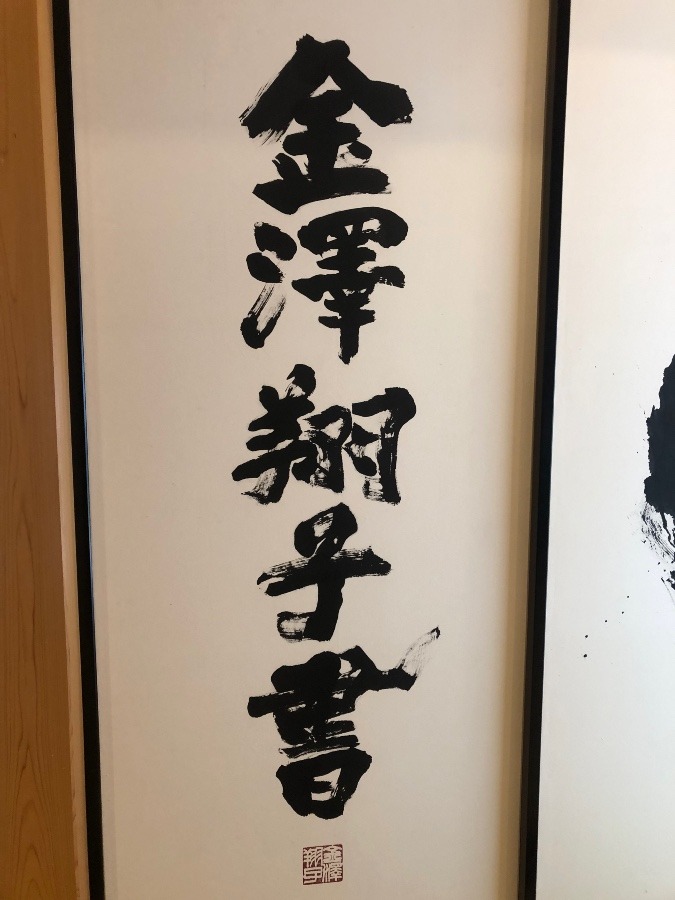 金澤翔子書
金澤
翔子